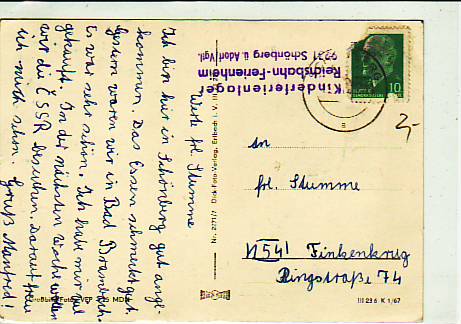 Werte frl. Stumme
Ich bin hier in Schönberg gut ange-
kommen. Das Essen schmeckt gut.
Gestern waren wir in Bad Brambach.
Es war sehr schön. Ich hab mir viel
gekauft. In der nächsten Woche wollen
wir die ČSSR besuchen. Darauf freue
ich mich schon. Gruß Manfred!
Nr. 2771/7 Dick-Foto-Verlag, Erlbach i. V.
Kinderferienlager
Reichsbahn-Ferienheim
9931 Schönberg ü. Adorf Vgtl.
10
2,-
An
frl. Stumme
1541 Finkenkrug
Ringstraße 74
III 23 6 K 1/67